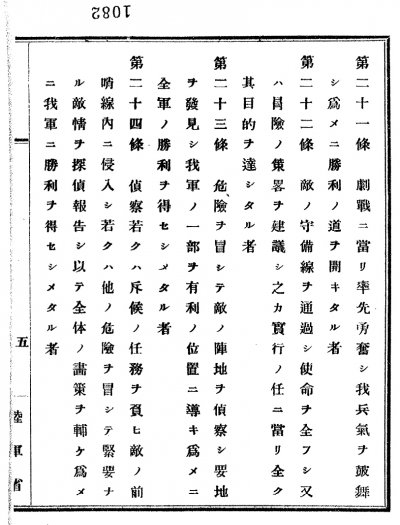 1082
第二十一條 劇戰ニ當リ率先勇奮シ我兵氣ヲ鼓舞
シ爲メニ勝利ノ道ヲ開キタル者
第二十二條 敵ノ守備線ヲ通過シ使命ヲ全フシ又
ハ冒險ノ策畧ヲ建議シ之カ實行ノ任ニ當リ全ク
其目的ヲ達シタル者
第二十三條 危險ヲ冒シテ敵ノ陣地ヲ偵察シ要地
ヲ發見シ我軍ノ一部ヲ有利ノ位置ニ導キ爲メニ
全軍ノ勝利ヲ得セシメタル者
第二十四條 偵察若クハ斥候ノ任務ヲ負ヒ敵ノ前
哨線內ニ侵入シ若クハ他ノ危險ヲ冒シテ緊要ナ
ル敵情ヲ探偵報告シ以テ全体ノ畫策ヲ輔ケ爲メ
ニ我軍ニ勝利ヲ得セシメタル者
五
陸軍省